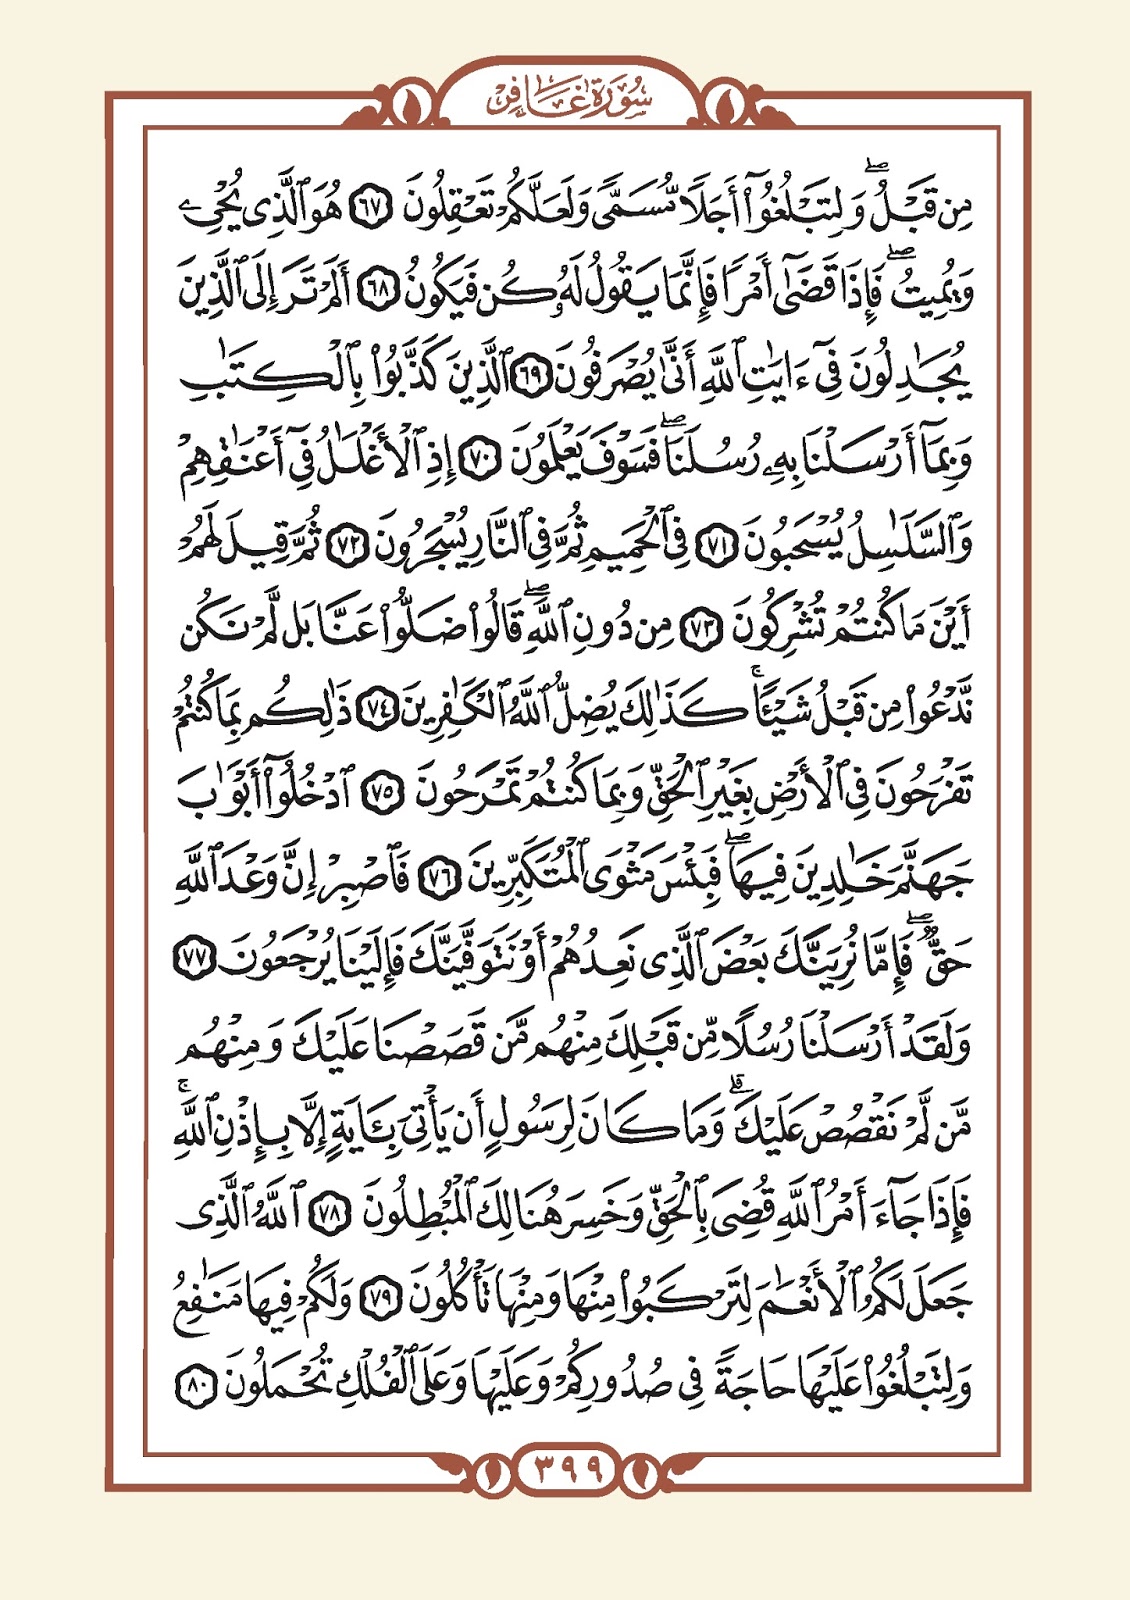 سُورَةُ غَافِر
مِن قَبْلُۖ وَلِتَبْلُغُوٓاْ أَجَلٗا مُّسَمّٗى وَلَعَلَّكُمْ تَعْقِلُونَ ٦٧ هُوَ ٱلَّذِى يُحْىِۦ
وَيُمِيتُۖ فَإِذَا قَضَىٰٓ أَمْرٗا فَإِنَّمَا يَقُولُ لَهُۥ كُن فَيَكُونُ ٦٨ أَلَمْ تَرَ إِلَى ٱلَّذِينَ
يُجَٰدِلُونَ فِىٓ ءَايَٰتِ ٱللَّهِ أَنَّىٰ يُصْرَفُونَ ٦٩ ٱلَّذِينَ كَذَّبُواْ بِٱلْكِتَٰبِ
وَبِمَآ أَرْسَلْنَا بِهِۦ رُسُلَنَاۖ فَسَوْفَ يَعْلَمُونَ ٧٠ إِذِ ٱلْأَغْلَٰلُ فِىٓ أَعْنَٰقِهِمْ
وَٱلسَّلَٰسِلُ يُسْحَبُونَ ٧١ فِى ٱلْحَمِيمِ ثُمَّ فِى ٱلنَّارِ يُسْجَرُونَ ٧٢ ثُمَّ قِيلَ لَهُمْ
أَيْنَ مَا كُنتُمْ تُشْرِكُونَ ٧٣ مِن دُونِ ٱللَّهِۖ قَالُواْ ضَلُّواْ عَنَّا بَل لَّمْ نَكُن
نَّدْعُواْ مِن قَبْلُ شَيْـًٔاۚ كَذَٰلِكَ يُضِلُّ ٱللَّهُ ٱلْكَٰفِرِينَ ٧٤ ذَٰلِكُم بِمَا كُنتُمْ
تَفْرَحُونَ فِى ٱلْأَرْضِ بِغَيْرِ ٱلْحَقِّ وَبِمَا كُنتُمْ تَمْرَحُونَ ٧٥ ٱدْخُلُوٓاْ أَبْوَٰبَ
جَهَنَّمَ خَٰلِدِينَ فِيهَاۖ فَبِئْسَ مَثْوَى ٱلْمُتَكَبِّرِينَ ٧٦ فَٱصْبِرْ إِنَّ وَعْدَ ٱللَّهِ
حَقّٞۖ فَإِمَّا نُرِيَنَّكَ بَعْضَ ٱلَّذِى نَعِدُهُمْ أَوْ نَتَوَفَّيَنَّكَ فَإِلَيْنَا يُرْجَعُونَ ٧٧
وَلَقَدْ أَرْسَلْنَا رُسُلٗا مِّن قَبْلِكَ مِنْهُم مَّن قَصَصْنَا عَلَيْكَ وَمِنْهُم
مَّن لَّمْ نَقْصُصْ عَلَيْكَۗ وَمَا كَانَ لِرَسُولٍ أَن يَأْتِىَ بِـَٔايَةٍ إِلَّا بِإِذْنِ ٱللَّهِۚ
فَإِذَا جَآءَ أَمْرُ ٱللَّهِ قُضِىَ بِٱلْحَقِّ وَخَسِرَ هُنَالِكَ ٱلْمُبْطِلُونَ ٧٨ ٱللَّهُ ٱلَّذِى
جَعَلَ لَكُمُ ٱلْأَنْعَٰمَ لِتَرْكَبُواْ مِنْهَا وَمِنْهَا تَأْكُلُونَ ٧٩ وَلَكُمْ فِيهَا مَنَٰفِعُ
وَلِتَبْلُغُواْ عَلَيْهَا حَاجَةٗ فِى صُدُورِكُمْ وَعَلَيْهَا وَعَلَى ٱلْفُلْكِ تُحْمَلُونَ ٨٠
٣٩٩